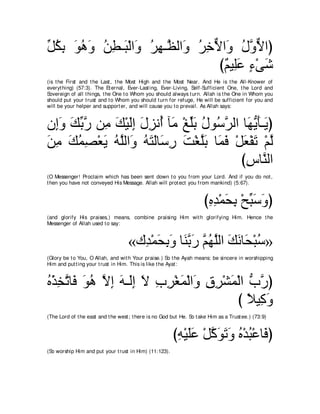 (الاٌّوَّلُ وَالاٌّخِرُ وَالظَّـهِرُ وَالْبَـطِنُ وَهُوَ بِكُلِّ
شَىْءٍ عَلِيمٌ)
(is the First and the Last, the Most High and the Most Near. And He is the All-Knower of
everything) (57:3). The Eternal, Ever-Lasting, Ever-Living, Self-Sufficient One, the Lord and
Sovereign of all things, the One to Whom you should always turn. Allah is the One in Whom you
should put your trust and to Whom you should turn for refuge, He will be sufficient for you and
will be your helper and supporter, and will cause you to prevail. As Allah says:
(يَـأَيُّهَا الرَّسُولُ بَلِّغْ مَآ أُنزِلَ إِلَيْكَ مِن رَّبِّكَ وَإِن
لَّمْ تَفْعَلْ فَمَا بَلَّغْتَ رِسَالَتَهُ وَاللَّهُ يَعْصِمُكَ مِنَ
النَّاسِ)
(O Messenger! Proclaim which has been sent down to you from your Lord. And if you do not,
then you have not conveyed His Message. Allah will protect you from mankind) (5:67).
(وَسَبِّحْ بِحَمْدِهِ)
(and glorify His praises,) means, combine praising Him with glorifying Him. Hence the
Messenger of Allah used to say:
«سُبْحَانَكَ اللَّهُمَّ رَبَّنَا وَبِحَمْدِك»
(Glory be to You, O Allah, and with Your praise.) So the Ayah means: be sincere in worshipping
Him and putting your trust in Him. This is like the Ayat:
(رَّبُّ الْمَشْرِقِ وَالْمَغْرِبِ لاَ إِلَـهَ إِلاَّ هُوَ فَاتَّخِذْهُ
وَكِيلاً )
(The Lord of the east and the west; there is no God but He. So take Him as a Trustee.) (73:9)
(فَاعْبُدْهُ وَتَوَكَّلْ عَلَيْهِ)
(So worship Him and put your trust in Him) (11:123).